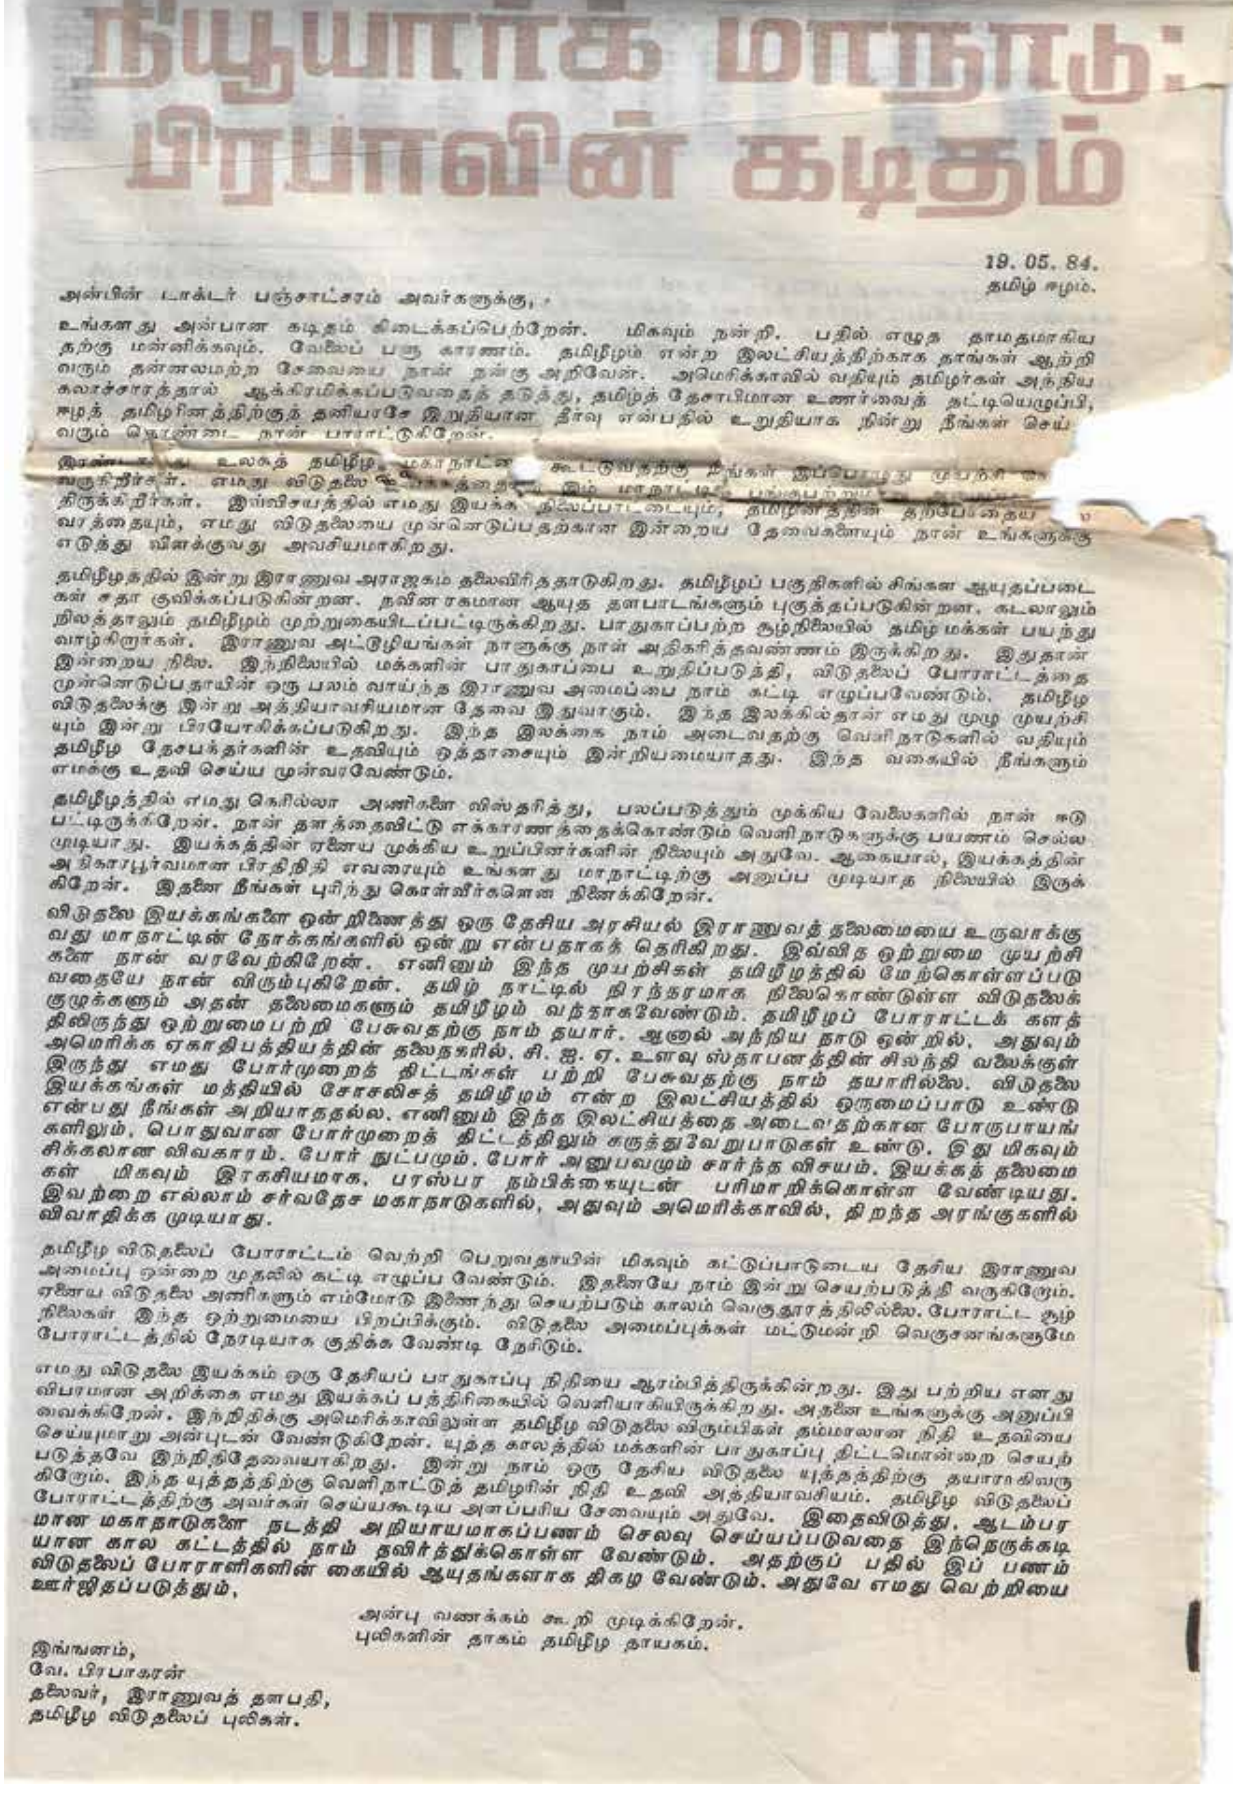 நியூயார்க் மாநாடு:
பிரபாவின் கடிதம்
19. 05. 84.
தமிழ் ஈழம்.
அன்பின் டாக்டர் பஞ்சாட்சரம் அவர்களுக்கு,
உங்களது அன்பான கடிதம் கிடைக்கப்பெற்றேன். மிகவும் நன்றி. பதில் எழுத தாமதமாகிய
தற்கு மன்னிக்கவும். வேலைப் பளு காரணம். தமிழீழம் என்ற இலட்சியத்திற்காக தாங்கள் ஆற்றி
வரும் தன்னலமற்ற சேவையை நான் நன்கு அறிவேன். அமெரிக்காவில் வதியும் தமிழர்கள் அந்நிய
கலாச்சாரத்தால் ஆக்கிரமிக்கப்படுவதைத் தடுத்து, தமிழ்த் தேசாபிமான உணர்வைத் தட்டியெழுப்பி,
ஈழத் தமிழரினத்திற்குத் தனியரசே இறுதியான தீர்வு என்பதில் உறுதியாக நின்று நீங்கள் செய்
வரும் தொண்டை நான் பாராட்டுகிறேன்.
உலகத் தமிழீழ மகாநாட்டை கூட்டுவதற்கு நீங்கள் இப்பொழுது முயற்சி
வருகிறீர்கள். எமது விடுதலை இம் மாநாட்டில்
திருக்கிறீர்கள். இவ்விசயத்தில் எமது இயக்க நிலைப்பாட்டையும், தமிழினத்தின் தற்போதைய
வரத்தையும், எமது விடுதலையை முன்னெடுப்பதற்கான இன்றைய தேவைகளையும் நான் உங்களுக்கு
எடுத்து விளக்குவது அவசியமாகிறது.
தமிழீழத்தில் இன்று இராணுவ அராஜகம் தலைவிரித்தாடுகிறது. தமிழீழப் பகுதிகளில் சிங்கள ஆயுதப்படை
கள் சதா குவிக்கப்படுகின்றன. நவீன ரகமான ஆயுத தளபாடங்களும் புகுத்தப்படுகின்றன. கடலாலும்
நிலத்தாலும் தமிழீழம் முற்றுகையிடப்பட்டிருக்கிறது. பாதுகாப்பற்ற சூழ்நிலையில் தமிழ் மக்கள் பயந்து
வாழ்கிறார்கள். இராணுவ அட்டூழியங்கள் நாளுக்கு நாள் அதிகரித்தவண்ணம் இருக்கிறது. இதுதான்
இன்றைய நிலை. இந்நிலையில் மக்களின் பாதுகாப்பை உறுதிப்படுத்தி, விடுதலைப் போராட்டத்தை
முன்னெடுப்பதாயின் ஒரு பலம் வாய்ந்த இராணுவ அமைப்பை நாம் கட்டி எழுப்பவேண்டும். தமிழீழ
விடுதலைக்கு இன்று அத்தியாவசியமான தேவை இதுவாகும். இந்த இலக்கில்தான் எமது முழு முயற்சி
யும் இன்று பிரயோகிக்கப்படுகிறது. இந்த இலக்கை நாம் அடைவதற்கு வெளிநாடுகளில் வதியும்
தமிழீழ தேசபக்தர்களின் உதவியும் ஒத்தாசையும் இன்றியமையாதது. இந்த வகையில் நீங்களும்
எமக்கு உதவி செய்ய முன்வரவேண்டும்.
தமிழீழத்தில் எமது கெரில்லா அணிகளை விஸ்தரித்து, பலப்படுத்தும் முக்கிய வேலைகளில் நான் ஈடு
பட்டிருக்கிறேன். நான் தளத்தைவிட்டு எக்காரணத்தைக்கொண்டும் வெளிநாடுகளுக்கு பயணம் செல்ல
முடியாது. இயக்கத்தின் ஏனைய முக்கிய உறுப்பினர்களின் நிலையும் அதுவே. ஆகையால், இயக்கத்தின்
அதிகாரபூர்வமான பிரதிநிதி எவரையும் உங்களது மாநாட்டிற்கு அனுப்ப முடியாத நிலையில் இருக்
கிறேன். இதனை நீங்கள் புரிந்து கொள்வீர்களென நினைக்கிறேன்.
விடுதலை இயக்கங்களை ஒன்றிணைத்து ஒரு தேசிய அரசியல் இராணுவத் தலைமையை உருவாக்கு
வது மாநாட்டின் நோக்கங்களில் ஒன்று என்பதாகத் தெரிகிறது. இவ்வித ஒற்றுமை முயற்சி
களை நான் வரவேற்கிறேன். எனினும் இந்த முயற்சிகள் தமிழீழத்தில் மேற்கொள்ளப்படு
வதையே நான் விரும்புகிறேன். தமிழ் நாட்டில் நிரந்தரமாக நிலைகொண்டுள்ள விடுதலைக்
குழுக்களும் அதன் தலைமைகளும் தமிழீழம் வந்தாகவேண்டும். தமிழீழப் போராட்டக் களத்
திலிருந்து ஒற்றுமைபற்றி பேசுவதற்கு நாம் தயார். ஆனால் அந்நிய நாடு ஒன்றில், அதுவும்
அமெரிக்க ஏகாதிபத்தியத்தின் தலைநகரில், சி. ஐ. ஏ. உளவு ஸ்தாபனத்தின் சிலந்தி வலைக்குள்
இருந்து எமது போர்முறைத் திட்டங்கள் பற்றி பேசுவதற்கு நாம் தயாரில்லை. விடுதலை
இயக்கங்கள் மத்தியில் சோசலிசத் தமிழீழம் என்ற இலட்சியத்தில் ஒருமைப்பாடு உண்டு
என்பது நீங்கள் அறியாததல்ல. எனினும் இந்த இலட்சியத்தை அடைவதற்கான போருபாயங்
களிலும், பொதுவான போர்முறைத் திட்டத்திலும் கருத்துவேறுபாடுகள் உண்டு. இது மிகவும்
சிக்கலான விவகாரம். போர் நுட்பமும், போர் அனுபவமும் சார்ந்த விசயம். இயக்கத் தலைமை
கள் மிகவும் இரகசியமாக, பரஸ்பர நம்பிக்கையுடன் பரிமாறிக்கொள்ள வேண்டியது.
இவற்றை எல்லாம் சர்வதேச மகாநாடுகளில், அதுவும் அமெரிக்காவில், திறந்த அரங்குகளில்
விவாதிக்க முடியாது.
தமிழீழ விடுதலைப் போராட்டம் வெற்றி பெறுவதாயின் மிகவும் கட்டுப்பாடுடைய தேசிய இராணுவ
அமைப்பு ஒன்றை முதலில் கட்டி எழுப்ப வேண்டும். இதனையே நாம் இன்று செயற்படுத்தி வருகிறோம்.
ஏனைய விடுதலை அணிகளும் எம்மோடு இணைந்து செயற்படும் காலம் வெகுதூரத்திலில்லை. போராட்ட சூழ்
நிலைகள் இந்த ஒற்றுமையை பிறப்பிக்கும். விடுதலை அமைப்புக்கள் மட்டுமன்றி வெகுசனங்களுமே
போராட்டத்தில் நேரடியாக குதிக்க வேண்டி நேரிடும்.
எமது விடுதலை இயக்கம் ஒரு தேசியப் பாதுகாப்பு நிதியை ஆரம்பித்திருக்கின்றது. இது பற்றிய எனது
விபரமான அறிக்கை எமது இயக்கப் பத்திரிகையில் வெளியாகியிருக்கிறது. அதனை உங்களுக்கு அனுப்பி
வைக்கிறேன். இந்நிதிக்கு அமெரிக்காவிலுள்ள தமிழீழ விடுதலை விரும்பிகள் தம்மாலான நிதி உதவியை
செய்யுமாறு அன்புடன் வேண்டுகிறேன். யுத்த காலத்தில் மக்களின் பாதுகாப்பு திட்டமொன்றை செயற்
படுத்தவே இந்நிதிதேவையாகிறது. இன்று நாம் ஒரு தேசிய விடுதலை யுத்தத்திற்கு தயாராகிவரு
கிறோம். இந்த யுத்தத்திற்கு வெளிநாட்டுத் தமிழரின் நிதி உதவி அத்தியாவசியம். தமிழீழ விடுதலைப்
போராட்டத்திற்கு அவர்கள் செய்யகூடிய அளப்பரிய சேவையும் அதுவே. இதைவிடுத்து, ஆடம்பர
மான மகாநாடுகளை நடத்தி அநியாயமாகப்பணம் செலவு செய்யப்படுவதை இந்நெருக்கடி
யான கால கட்டத்தில் நாம் தவிர்த்துக்கொள்ள வேண்டும். அதற்குப் பதில் இப் பணம்
விடுதலைப் போராளிகளின் கையில் ஆயுதங்களாக திகழ வேண்டும். அதுவே எமது வெற்றியை
ஊர்ஜிதப்படுத்தும்.
அன்பு வணக்கம் கூறி முடிக்கிறேன்.
புலிகளின் தாகம் தமிழீழ தாயகம்.
இங்ஙனம்,
வே. பிரபாகரன்
தலைவர், இராணுவத் தளபதி,
தமிழீழ விடுதலைப் புலிகள்.